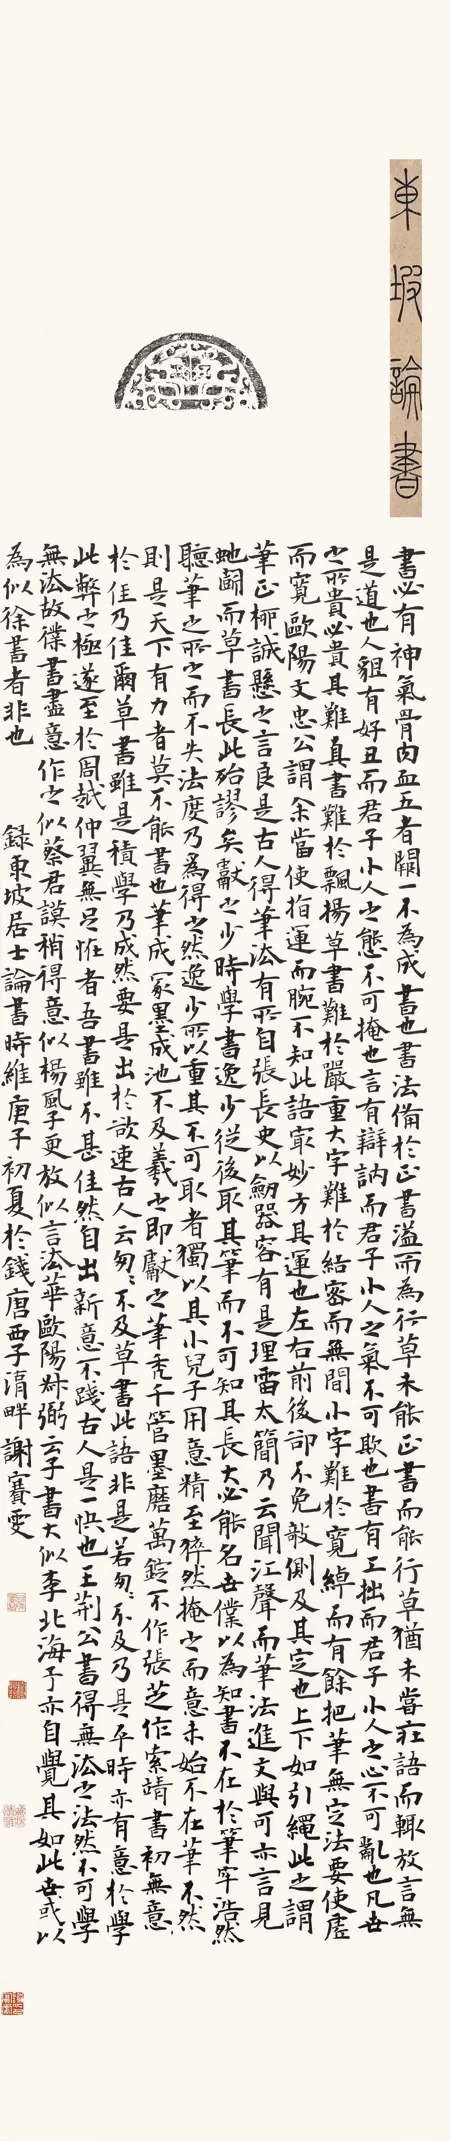 東坡論書
書必有神氣骨肉血五者闕一不為成書也書法備於正書溢而為行草未能正書而能行草猶未嘗莊語而輒放言無
是道也人貌有好丑而君子小人之態不可掩也言有辯訥而君子小人之氣不可欺也書有工拙而君子小人之心不可亂也凡世
之所貴必貴其難真書難於飄揚草書難於嚴重大字難於結密而無間小字難於寬綽而有餘把筆無定法要使虛
而寬歐陽文忠公謂余當使指運而腕不知此語最妙方其運也左右前後卻不免敧側及其定也上下如引繩此之謂
筆正柳誠懸之言良是古人得筆法有所自張長史以劒器容有是理雷太簡乃云聞江聲而筆法進文與可亦言見
虵鬭而草書長此殆謬矣獻之少時學書逸少從後取其筆而不可知其長大必能名世僕以為知書不在於筆牢浩然
聽筆之所之而不失法度乃為得之然逸少所以重其不可取者獨以其小兒子用意精至猝然掩之而意未始不在筆不然
則是天下有力者莫不能書也筆成冢墨成池不及羲之即獻之筆禿千管墨磨萬鋌不作張芝作索靖書初無意
於佳乃佳爾草書雖是積學乃成然要是出於欲速古人云匆匆不及草書此語非是若匆匆不及乃是平時亦有意於學
此弊之極遂至於周越仲翼無足怪者吾書雖不甚佳然自出新意不踐古人是一快也王荆公書得無法之法然不可學
無法故僕書盡意作之似蔡君謨稍得意似楊風子更放似言法華歐陽叔弼云子書大似李北海予亦自覺其如此世或以
為似徐書者非也 錄東坡居士論書時維庚子初夏於錢唐西子湖畔謝賽雯